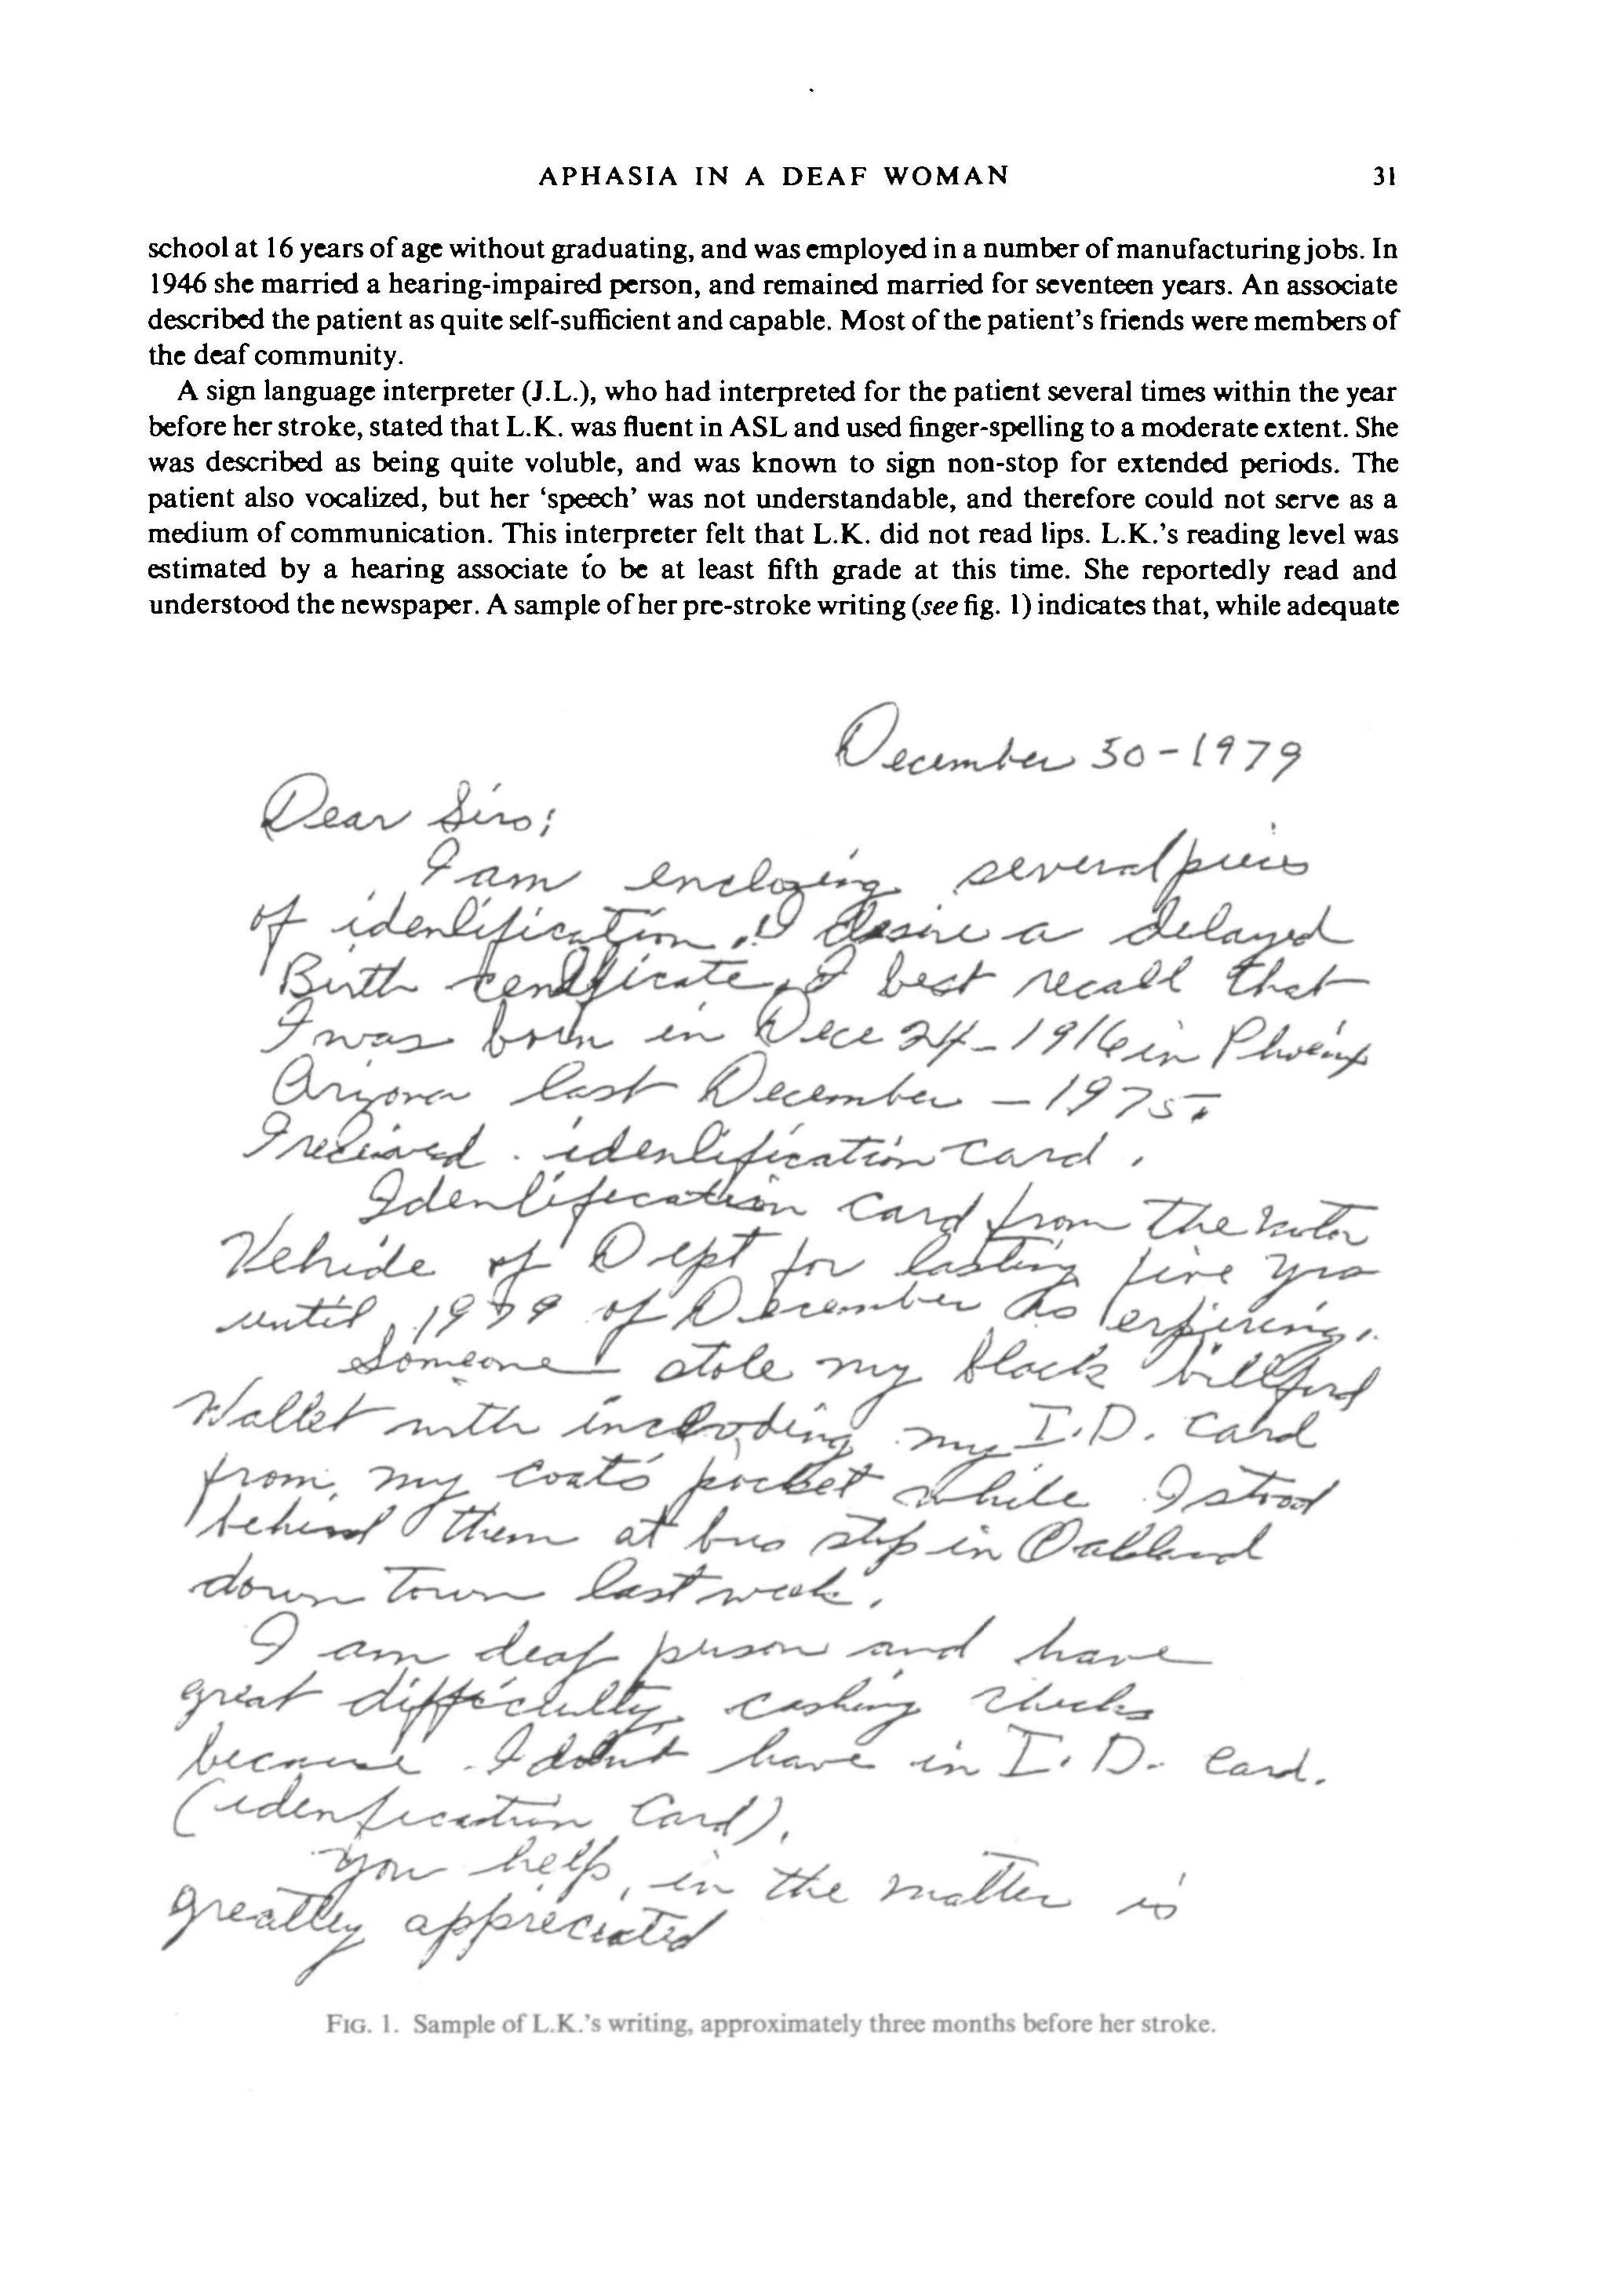 APHASIA IN A DEAF WOMAN 31
school at 16 years of age without graduating, and was employed in a number of manufacturing jobs. In
1946 she married a hearing-impaired person, and remained married for seventeen years. An associate
described the patient as quite self-sufficient and capable. Most of the patient's friends were members of
the deaf community.
A sign language interpreter (J.L.), who had interpreted for the patient several times within the year
before her stroke, stated that L.K. was fluent in ASL and used finger-spelling to a moderate extent. She
was described as being quite voluble, and was known to sign non-stop for extended periods. The
patient also vocalized, but her 'speech' was not understandable, and therefore could not serve as a
medium of communication. This interpreter felt that L.K. did not read lips. L.K.'s reading level was
estimated by a hearing associate to be at least fifth grade at this time. She reportedly read and
understood the newspaper. A sample of her pre-stroke writing (see fig. 1) indicates that, while adequate
December 30-1979
Dear Sirs;
I am enclozing several pieces
of idenlification. I desire a delayed
Birth I best recall that
I was born in Dece 24-1916 in Phoenix
Arizona last December - 1975.
I recieved idenlification card.
Idenlification card from the
Vehicle of Dept for lasting five yrs
until, 1979 of December as expiring.
Someone stole my black
Wallet with including my I.D. card
from my coat's pocket while I stood
behind them at bus stop in Oakland
down town last week.
I am deaf person and have
great difficulty cashing checks
because I don't have in I.D. card.
(idenfication Card).
You help, in the matter is
greatley appreciated
FIG. 1. Sample of L.K.'s writing, approximately three months before her stroke.